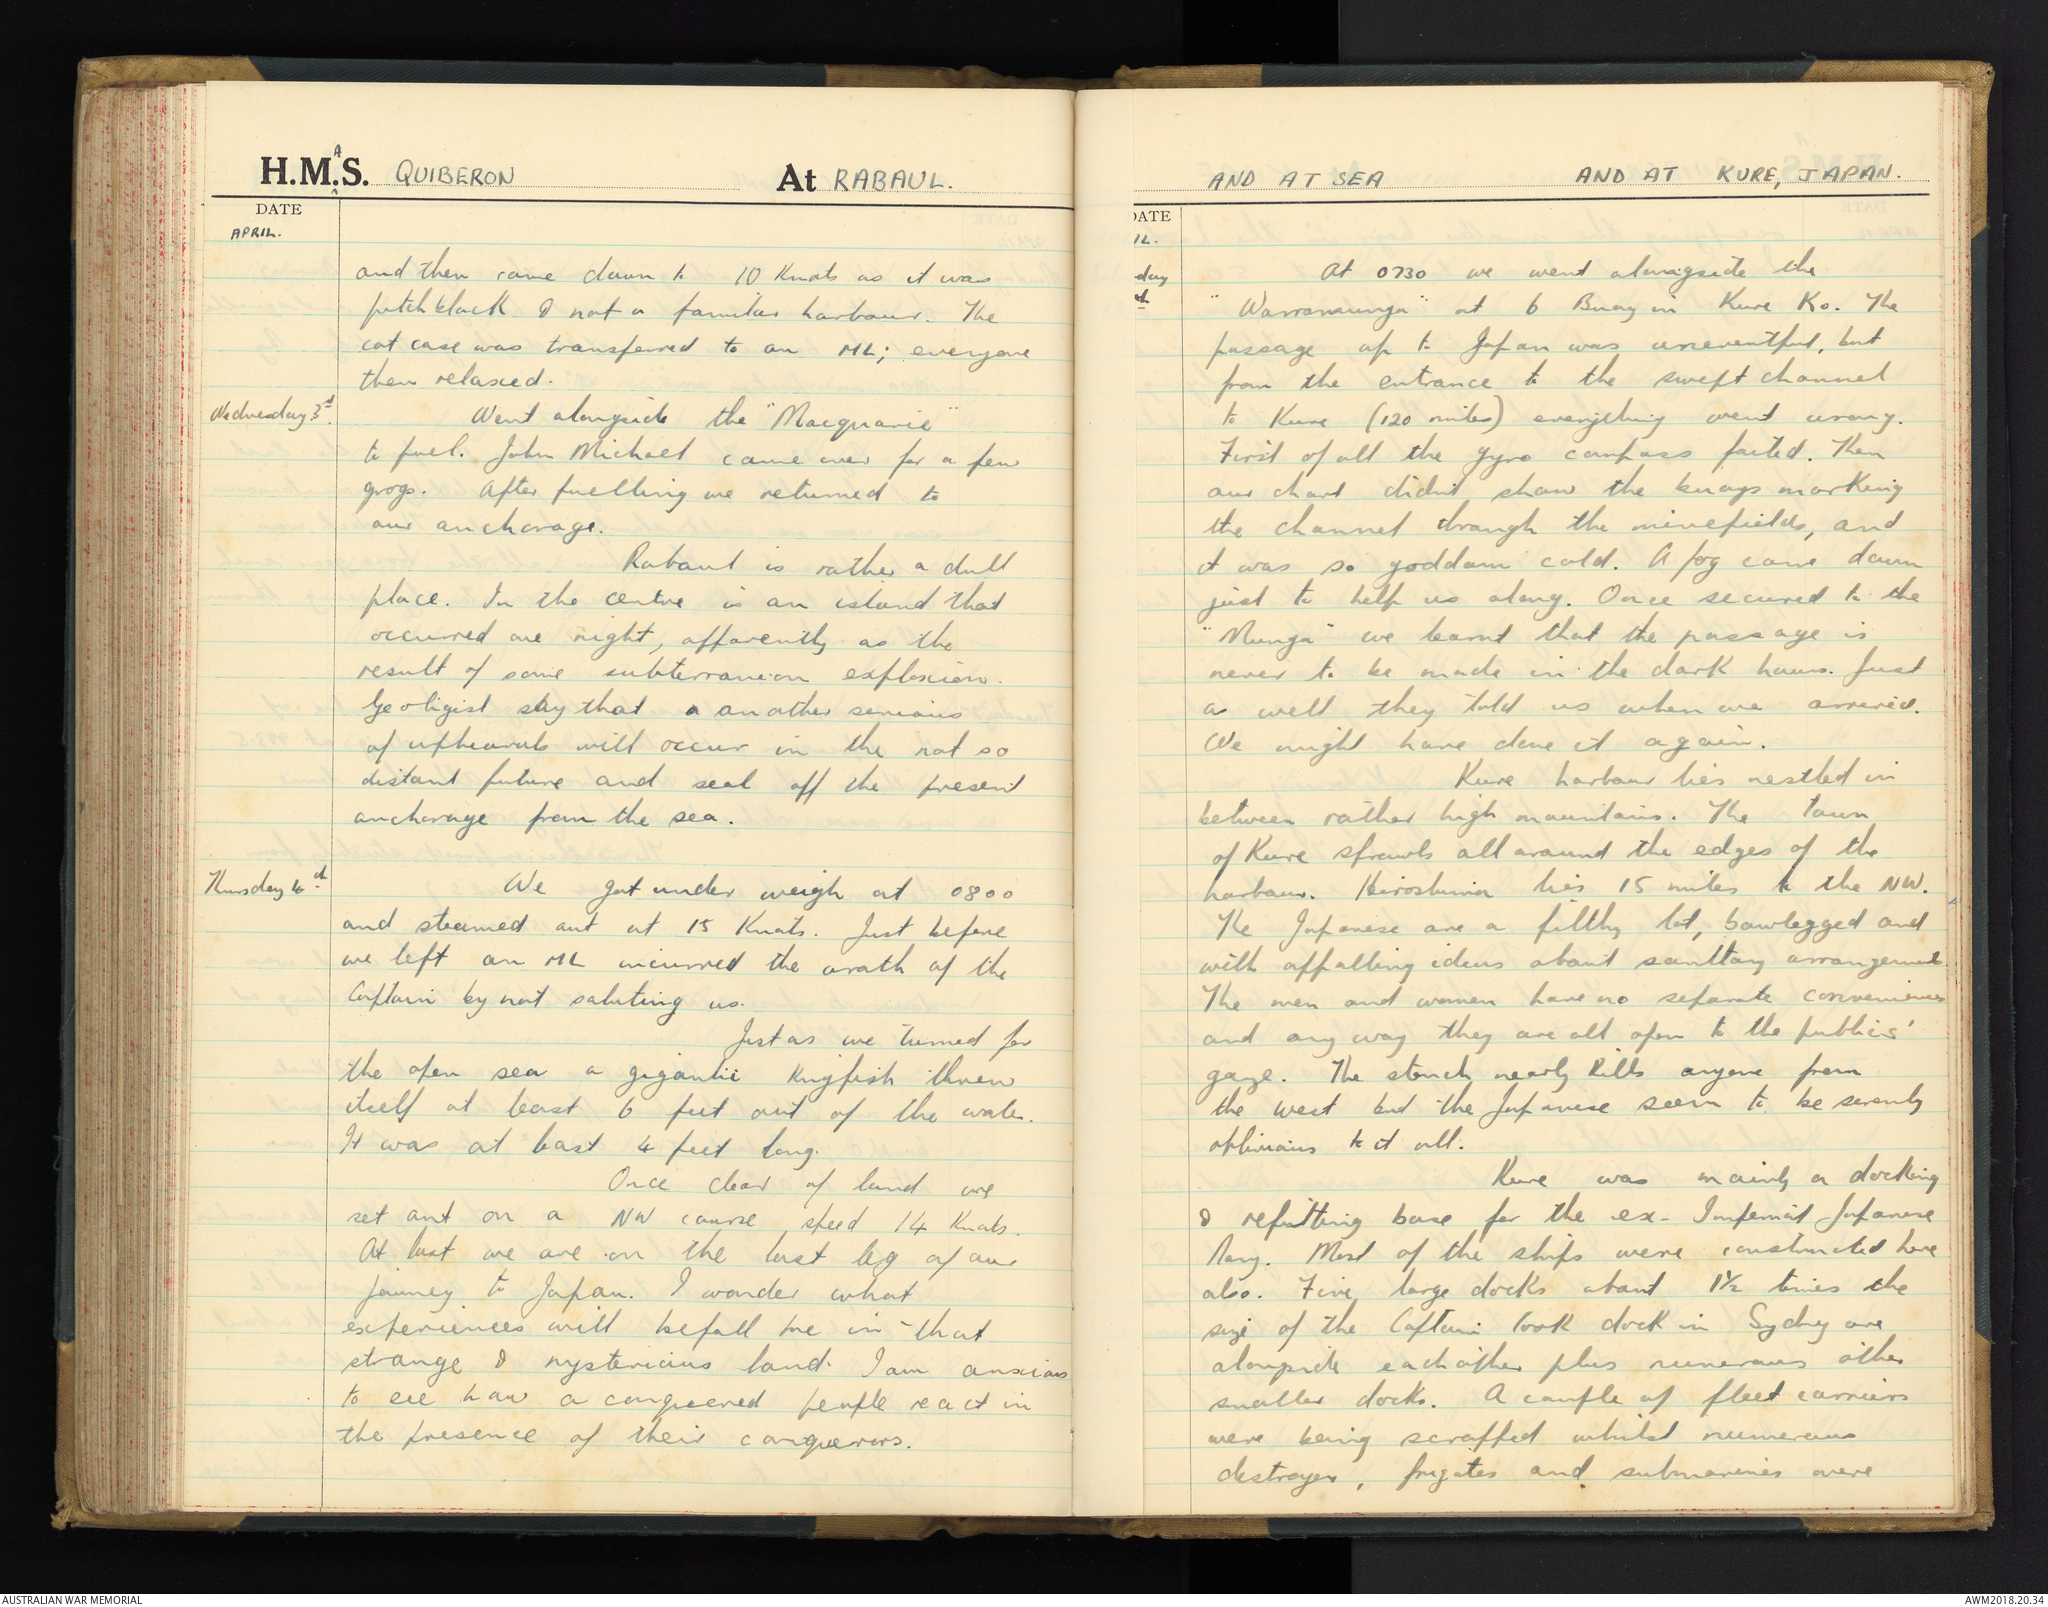 H.M.A.S. QUIBERON At RABAUL.
DATE
APRIL.
and then came down to 10 Knots as it was
pitch black & not a familiar harbour. The
cot case was transferred to an ML; everyone
then relaxed.
Wednesday 3rd. Went alongside the "Macquarie"
to fuel. John Michael came over for a few
grogs. After fuelling we returned to
our anchorage.
Rabaul is rather a dull
place. In the centre is an island that
occurred one night, apparently as the
result of some subterranean explosion.
Geoligist say that a another serious
of upheavals will occur in the not so
distant future and seal off the present
anchorage from the sea.
Thursday 4th We got under weigh at 0800
and steamed out at 15 Knots. Just before
we left an ML incurred the wrath of the
Captain by not saluting us.
Just as we turned for
the open sea a gigantic Kingfish threw
itself at least 6 feet out of the water.
It was at least 4 feet long.
Once clear of land we
set out on a NW course speed 14 Knots.
At last we are on the last leg of our
journey to Japan. I wonder what
experiences will befall me in that
strange & mysterious land. I am anxious
to see how a conquered people react in
the presence of their conquerors.
AND AT SEA AND AT KURE, JAPAN.
DATE
IL.
day At 0730 we went alongside the
"Warramunga" at 6 Buoy in Kure Ko. The
passage up to Japan was uneventful, but
from the entrance to the swept channel
to Kure (120 miles) everything went wrong.
First of all the gyro compass failed. Then
our chart didn't show the buoys marking
the channel through the minefields, and
it was so goddam cold. A fog came down
just to help us along. Once secured to the
"Munga" we learnt that the passage is
never to be made in the dark hours. Just
as well they told us when we arrived.
We might have done it again.
Kure harbour lies nestled in
between rather high mountains. The town
of Kure sprawls all around the edges of the
harbour. Hiroshima lies 15 miles to the NW.
The Japanese are a filthy lot, bowlegged and
with appalling ideas about sanitary arrangements.
The men and women have no separate conveniences
and any way they are all open to the publics'
gaze. The stench nearly kills anyone from
the west but the Japanese seem to be serenly
oblivious to it all.
Kure was mainly a docking
& refitting base for the ex-Imperial Japanese
Navy. Most of the ships were constructed here
also. Five large docks about 1½ times the
size of the Captain Cook dock in Sydney are
alongside each other plus numerous other
smaller docks. A couple of fleet carriers
were being scrapped whilst numerous
destroyers, frigates and submarines were
AUSTRALIAN WAR MEMORIAL
AWM2018.20.34